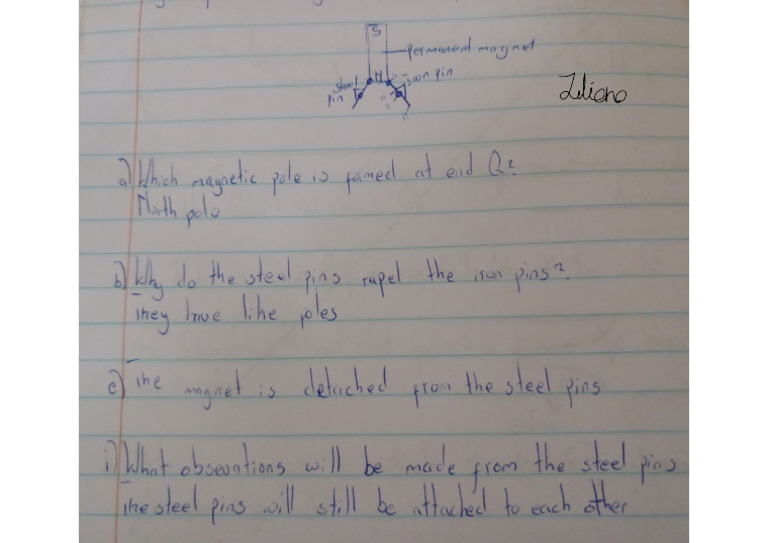 S
permanent magnet
steel pin
N
iron pin
a) Which magnetic pole is fomed at end Q?
North pole
b) Why do the steel pins rapel the iron pins?
They have like poles
c) The magnet is detached from the steel pins
i) What obsevations will be made from the steel pins
The steel pins will still be attached to each other